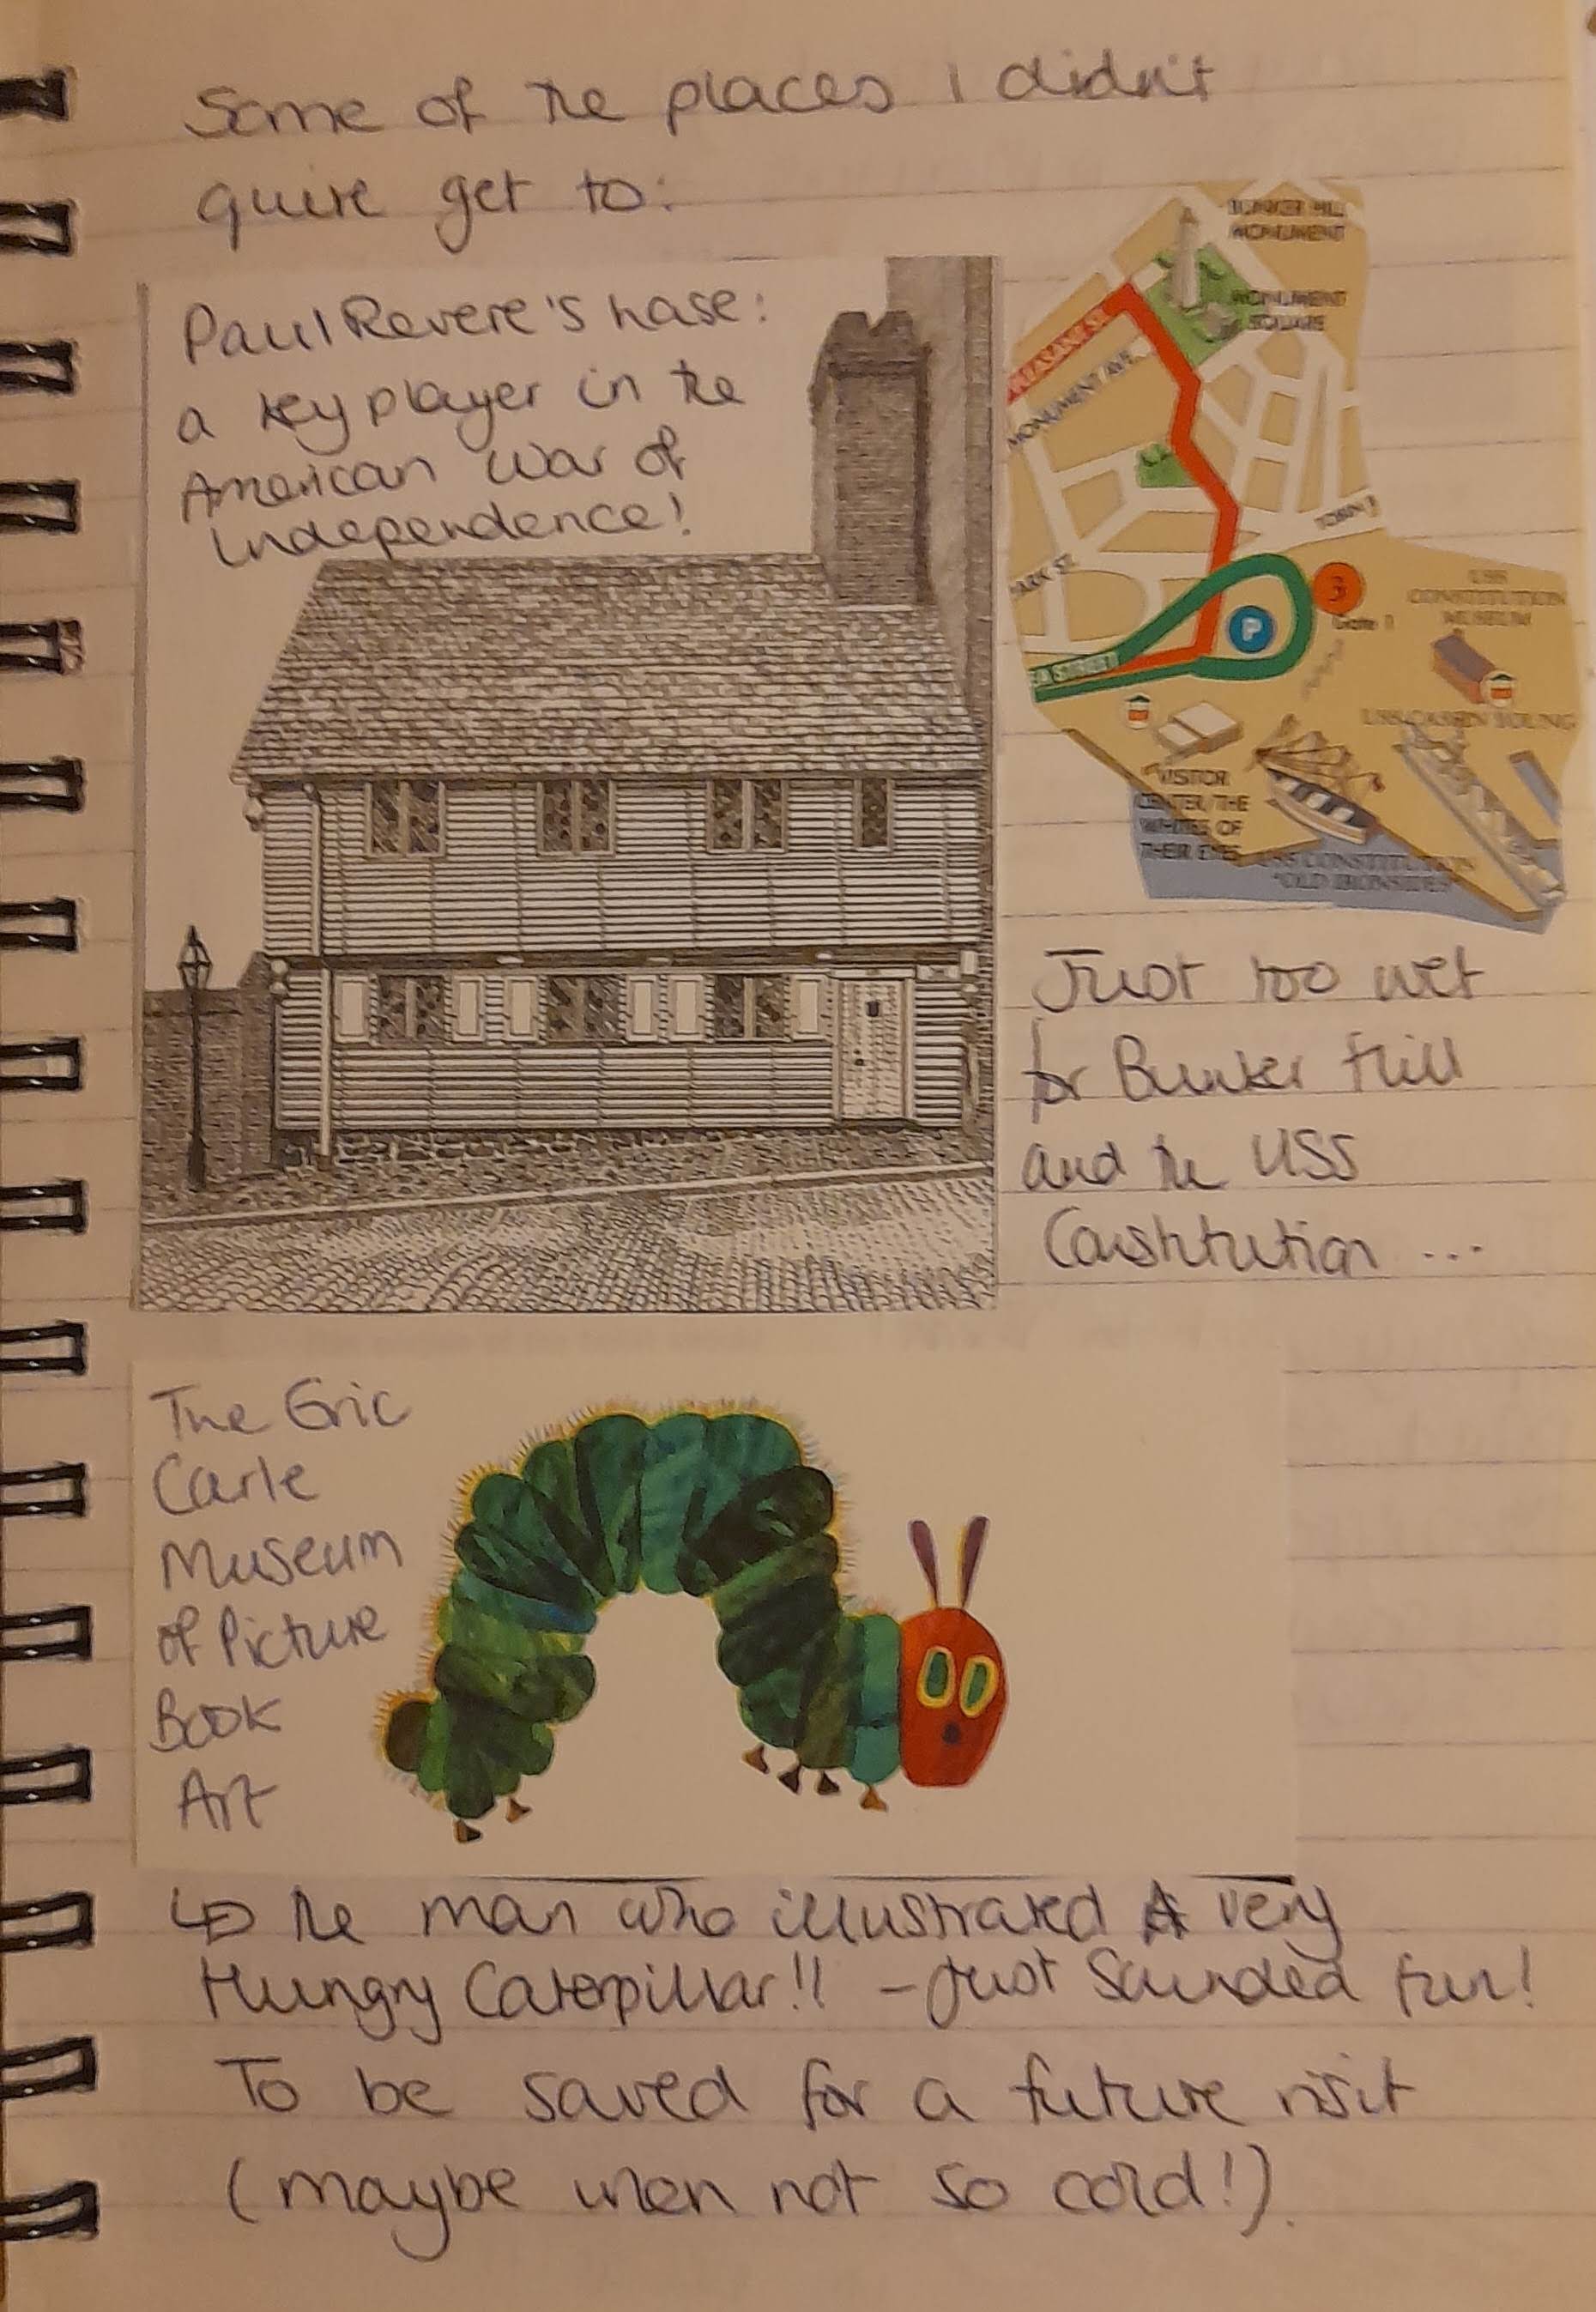 Some of the places I didn't
quite get to:
Paul Revere's house:
a key player in the
American War of
Independence!
BUNKER HILL
MONUMENT
MONUMENT
SQUARE
PLEASANT ST.
MONUMENT AVE.
TOBIN
PARK ST.
3
P
Gate 1
STREET
USS
CONSTITUTION
MUSEUM
USS CASSIN YOUNG
VISITOR
CENTER/THE
WHITES OF
THEIR EYES
USS CONSTITUTION
"OLD IRONSIDES"
Just too wet
for Bunker Hill
and the USS
Constitution ...
The Eric
Carle
Museum
of Picture
Book
Art
↳ the man who illustrated A very
Hungry Caterpillar!! - Just Sounded fun!
To be saved for a future visit
(maybe when not so cold!).